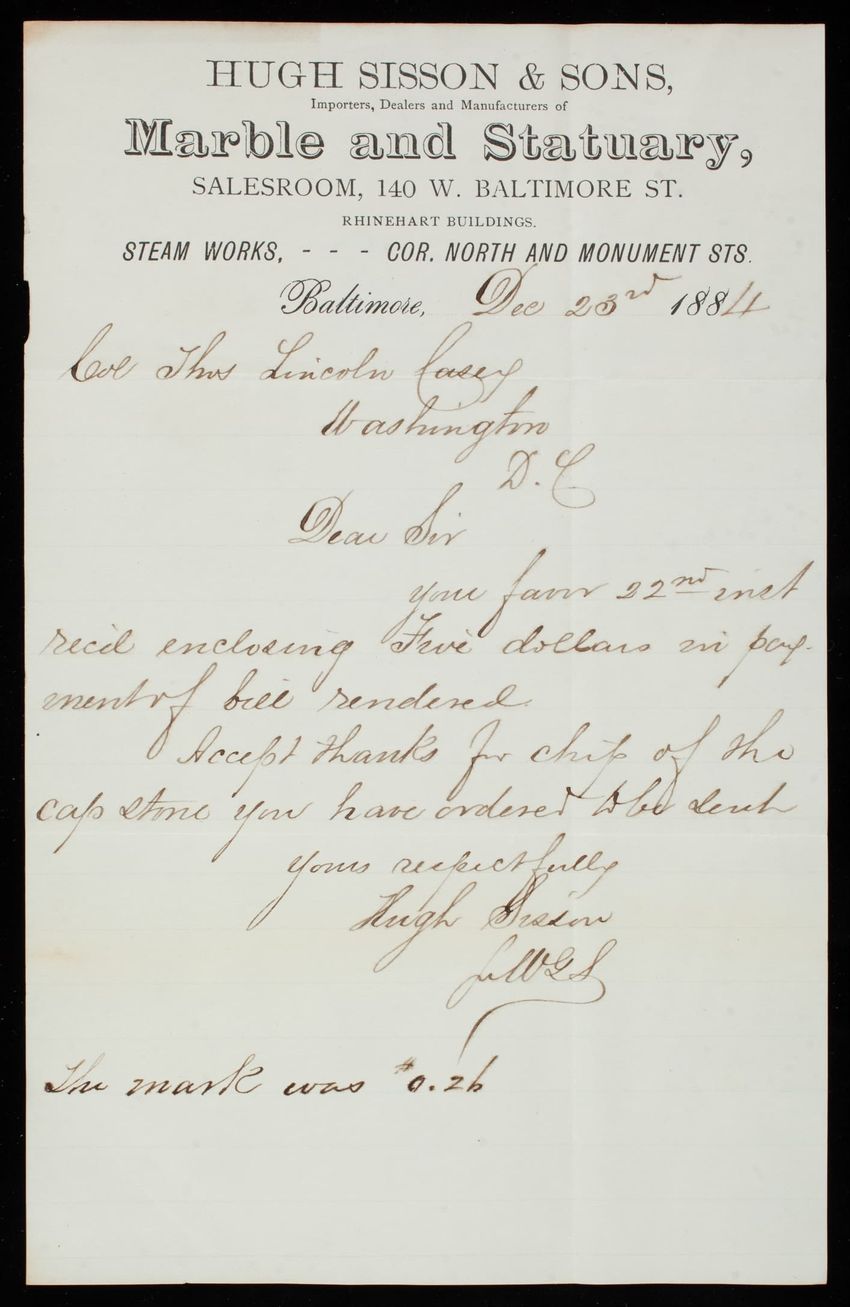 HUGH SISSON & SONS,
Importers, Dealers and Manufacturers of
Marble and Statuary,
SALESROOM, 140 W. BALTIMORE ST.
RHINEHART BUILDINGS.
STEAM WORKS, - - - COR. NORTH AND MONUMENT STS.
Baltimore, Dec 23rd 1884
Col Thos Lincoln Casey
Washington
D. C
Dear Sir
your favor 22nd inst
recd enclosing Five dollars in pay-
ment of bill rendered.
Accept thanks for chip of the
cap stone you have ordered to be sent
yours respectfully
Hugh Sisson
WGS
The mark was